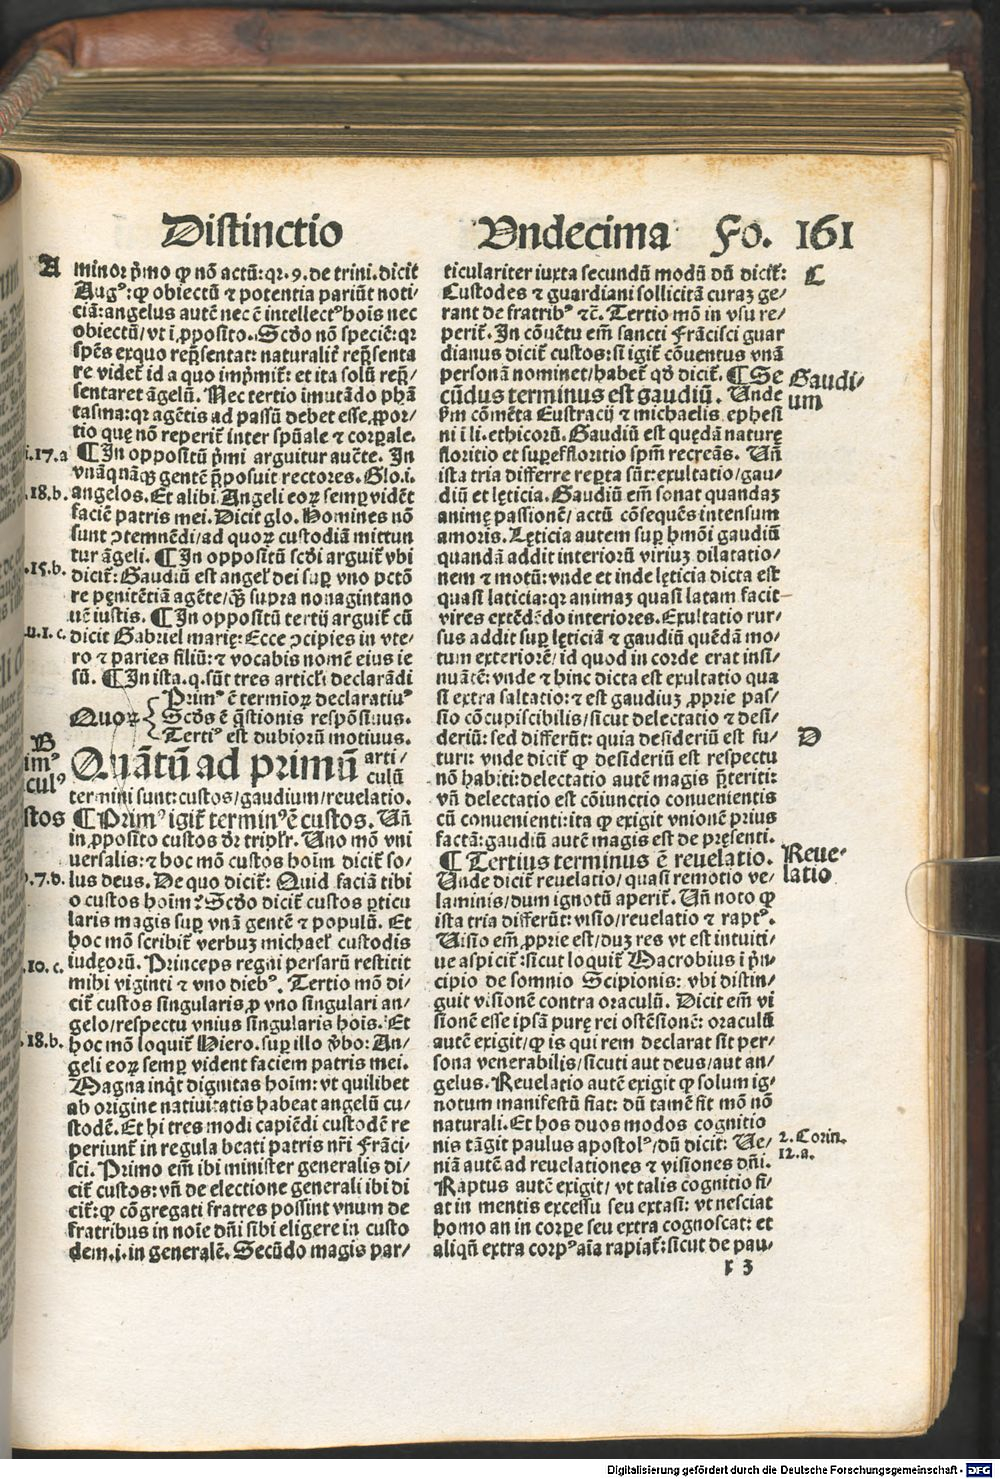 Distinctio Vndecima Fo. 161
A
minor p̄mo ꝙ nō actū: qꝛ. 9. de trini. dicit
Augꝰ: ꝙ obiectū ⁊ potentia pariūt noti-
ciā: angelus autē nec ē intellectꝰ hoīs nec
obiectū/ vt ī ꝓposito. Scd̄o nō speciē: qꝛ
spēs ex quo rep̄sentat: naturalit̄ rep̄senta
re videt̄ id a quo imp̄mit̄: et ita solū rep̄/
sentaret āgelū. Nec tertio imutādo phā
tasma: qꝛ agētis ad passū debet esse ꝓpor/
tio quę nō reperit̄ inter spūale ⁊ corꝑale.
i.17.a ¶ In oppositū p̄mi arguitur auc̄te. In
vnāquāqꝫ gentē p̄posuit rectores. Glo. i.
18.b. angelos. Et alibi. Angeli eoꝝ semꝑ vidēt
faciē patris mei. Dicit glo. Homines nō
sunt ↄtemnēdi/ ad quoꝝ custodiā mittun
tur āgeli. ¶ In oppositū scd̄i arguit̄ vbi
15.b. dicit̄: Gaudiū est angel̓ dei suꝑ vno pctō
re pęnitētiā agēte/ q̄ꝫ supra nonagintano
uē iustis. ¶ In oppositū tertij arguit̄ cū
u.1.c. dicit Gabriel marię: Ecce ↄcipies in vte/
ro ⁊ paries filiū: ⁊ vocabis nomē eius ie
sū. ¶ In ista. q. sūt tres articl̓i declarādi
Primꝰ ē termioꝝ declaratiuꝰ
Quoꝝ Scd̄s ē q̄stionis respōsiuus.
Tertiꝰ est dubiorū motiuus.
B
imꝰ
culꝰ
Quātū ad primū arti/
culū
termini sunt: custos/ gaudium/ reuelatio.
stos ¶ Primꝰ igit̄ terminꝰ ē custos. Vn̄
in ꝓposito custos dr̄ tripl̓r. Uno mō vni
uersalis: ⁊ hoc mō custos hoīm dicit̄ so/
7.d. lus deus. De quo dicit̄: Quid faciā tibi
o custos hoīm? Scd̄o dicit̄ custos ꝑticu
laris magis suꝑ vnā gentē ⁊ populū. Et
hoc mō scribit̄ verbuꝫ michael̓ custodis
10.c. iudęorū. Princeps regni persarū restitit
mihi viginti ⁊ vno diebꝰ. Tertio mō di/
cit̄ custos singularis ꝓ vno singulari an/
gelo/ respectu vnius singularis hoīs. Et
18.b. hoc mō loquit̄ Hiero. suꝑ illo v̄bo: An/
geli eoꝝ semꝑ vident faciem patris mei.
Magna inq̇t dignitas hoīm: vt quilibet
ab origine natiuitatis habeat angelū cu/
stodē. Et hi tres modi capiēdi custodē re
periunt̄ in regula beati patris nr̄i Frāci/
sci. Primo em̄ ibi minister generalis di/
cit̄ custos: vn̄ de electione generali ibi di
cit̄: ꝙ cōgregati fratres possint vnum de
fratribus in noīe dn̄i sibi eligere in custo
dem. i. in generalē. Secūdo magis par/
ticulariter iuxta secundū modū dū dicit̄: C
Custodes ⁊ guardiani sollicitā curaꝫ ge/
rant de fratribꝰ ⁊c̄. Tertio mō in vsu re/
perit̄. In cōuētu em̄ sancti Frācisci guar
dianus dicit̄ custos: si igit̄ cōuentus vnā
personā nominet/ habet̄ qd̄ dicit̄. ¶ Se Gaudi/
cūdus terminus est gaudiū. Unde um
p̄m cōmēta Eustracij ⁊ michaelis ephesi
ni ī li. ethicorū. Gaudiū est quędā naturę
floritio et suꝑeffloritio spm̄ recreās. Vn̄
ista tria differre reꝑta sūt: exultatio/ gau/
diū et lęticia. Gaudiū em̄ sonat quandaꝫ
animę passionē/ actū cōsequēs intensum
amoris. Lęticia autem suꝑ hmōi gaudiū
quandā addit interiorū viriuꝫ dilatatio/
nem ⁊ motū: vnde et inde lęticia dicta est
quasi laticia: qꝛ animaꝫ quasi latam facit
vires extēdēdo interiores. Exultatio rur/
sus addit suꝑ lęticiā ⁊ gaudiū quēdā mo/
tum exteriorē/ id quod in corde erat insi/
nuātē: vnde ⁊ hinc dicta est exultatio qua
si extra saltatio: ⁊ est gaudiuꝫ ꝓprie pas/
sio cōcupiscibilis/ sicut delectatio ⁊ desi/
deriū: sed differūt: quia desideriū est fu/ D
turi: vnde dicit̄ ꝙ desideriū est respectu
nō habiti: delectatio autē magis p̄teriti:
vn̄ delectatio est cōiunctio conuenientis
cū conuenienti: ita ꝙ exigit vnionē prius
factā: gaudiū autē magis est de pręsenti.
¶ Tertius terminus ē reuelatio. Reue-
Unde dicit̄ reuelatio/ quasi remotio ve/ latio
laminis/ dum ignotū aperit̄. Un̄ noto ꝙ
ista tria differūt: visio/ reuelatio ⁊ raptꝰ.
Uisio em̄ ꝓprie est/ duꝫ res vt est intuiti/
ue aspicit̄: sicut loquit̄ Macrobius ī p̄n/
cipio de somnio Scipionis: vbi distin/
guit visionē contra oraculū. Dicit em̄ vi
sionē esse ipsā purę rei ostēsionē: oraculū
autē exigit/ ꝙ is qui rem declarat sit per/
sona venerabilis/ sicuti aut deus/ aut an/
gelus. Reuelatio autē exigit ꝙ solum ig/
notum manifestū fiat: dū tamē sit mō nō
naturali. Et hos duos modos cognitio
nis tāgit paulus apostolꝰ/ dū dicit: Ue/ 2. Corin.
niā autē ad reuelationes ⁊ visiones dn̄i. 12.a.
Raptus autē exigit/ vt talis cognitio fi/
at in mentis excessu seu extasi: vt nesciat
homo an in corꝑe seu extra cognoscat: et
aliqn̄ extra corpꝰ aīa rapiat̄: sicut de pau/
x 3
Digitalisierung gefördert durch die Deutsche Forschungsgemeinschaft - DFG